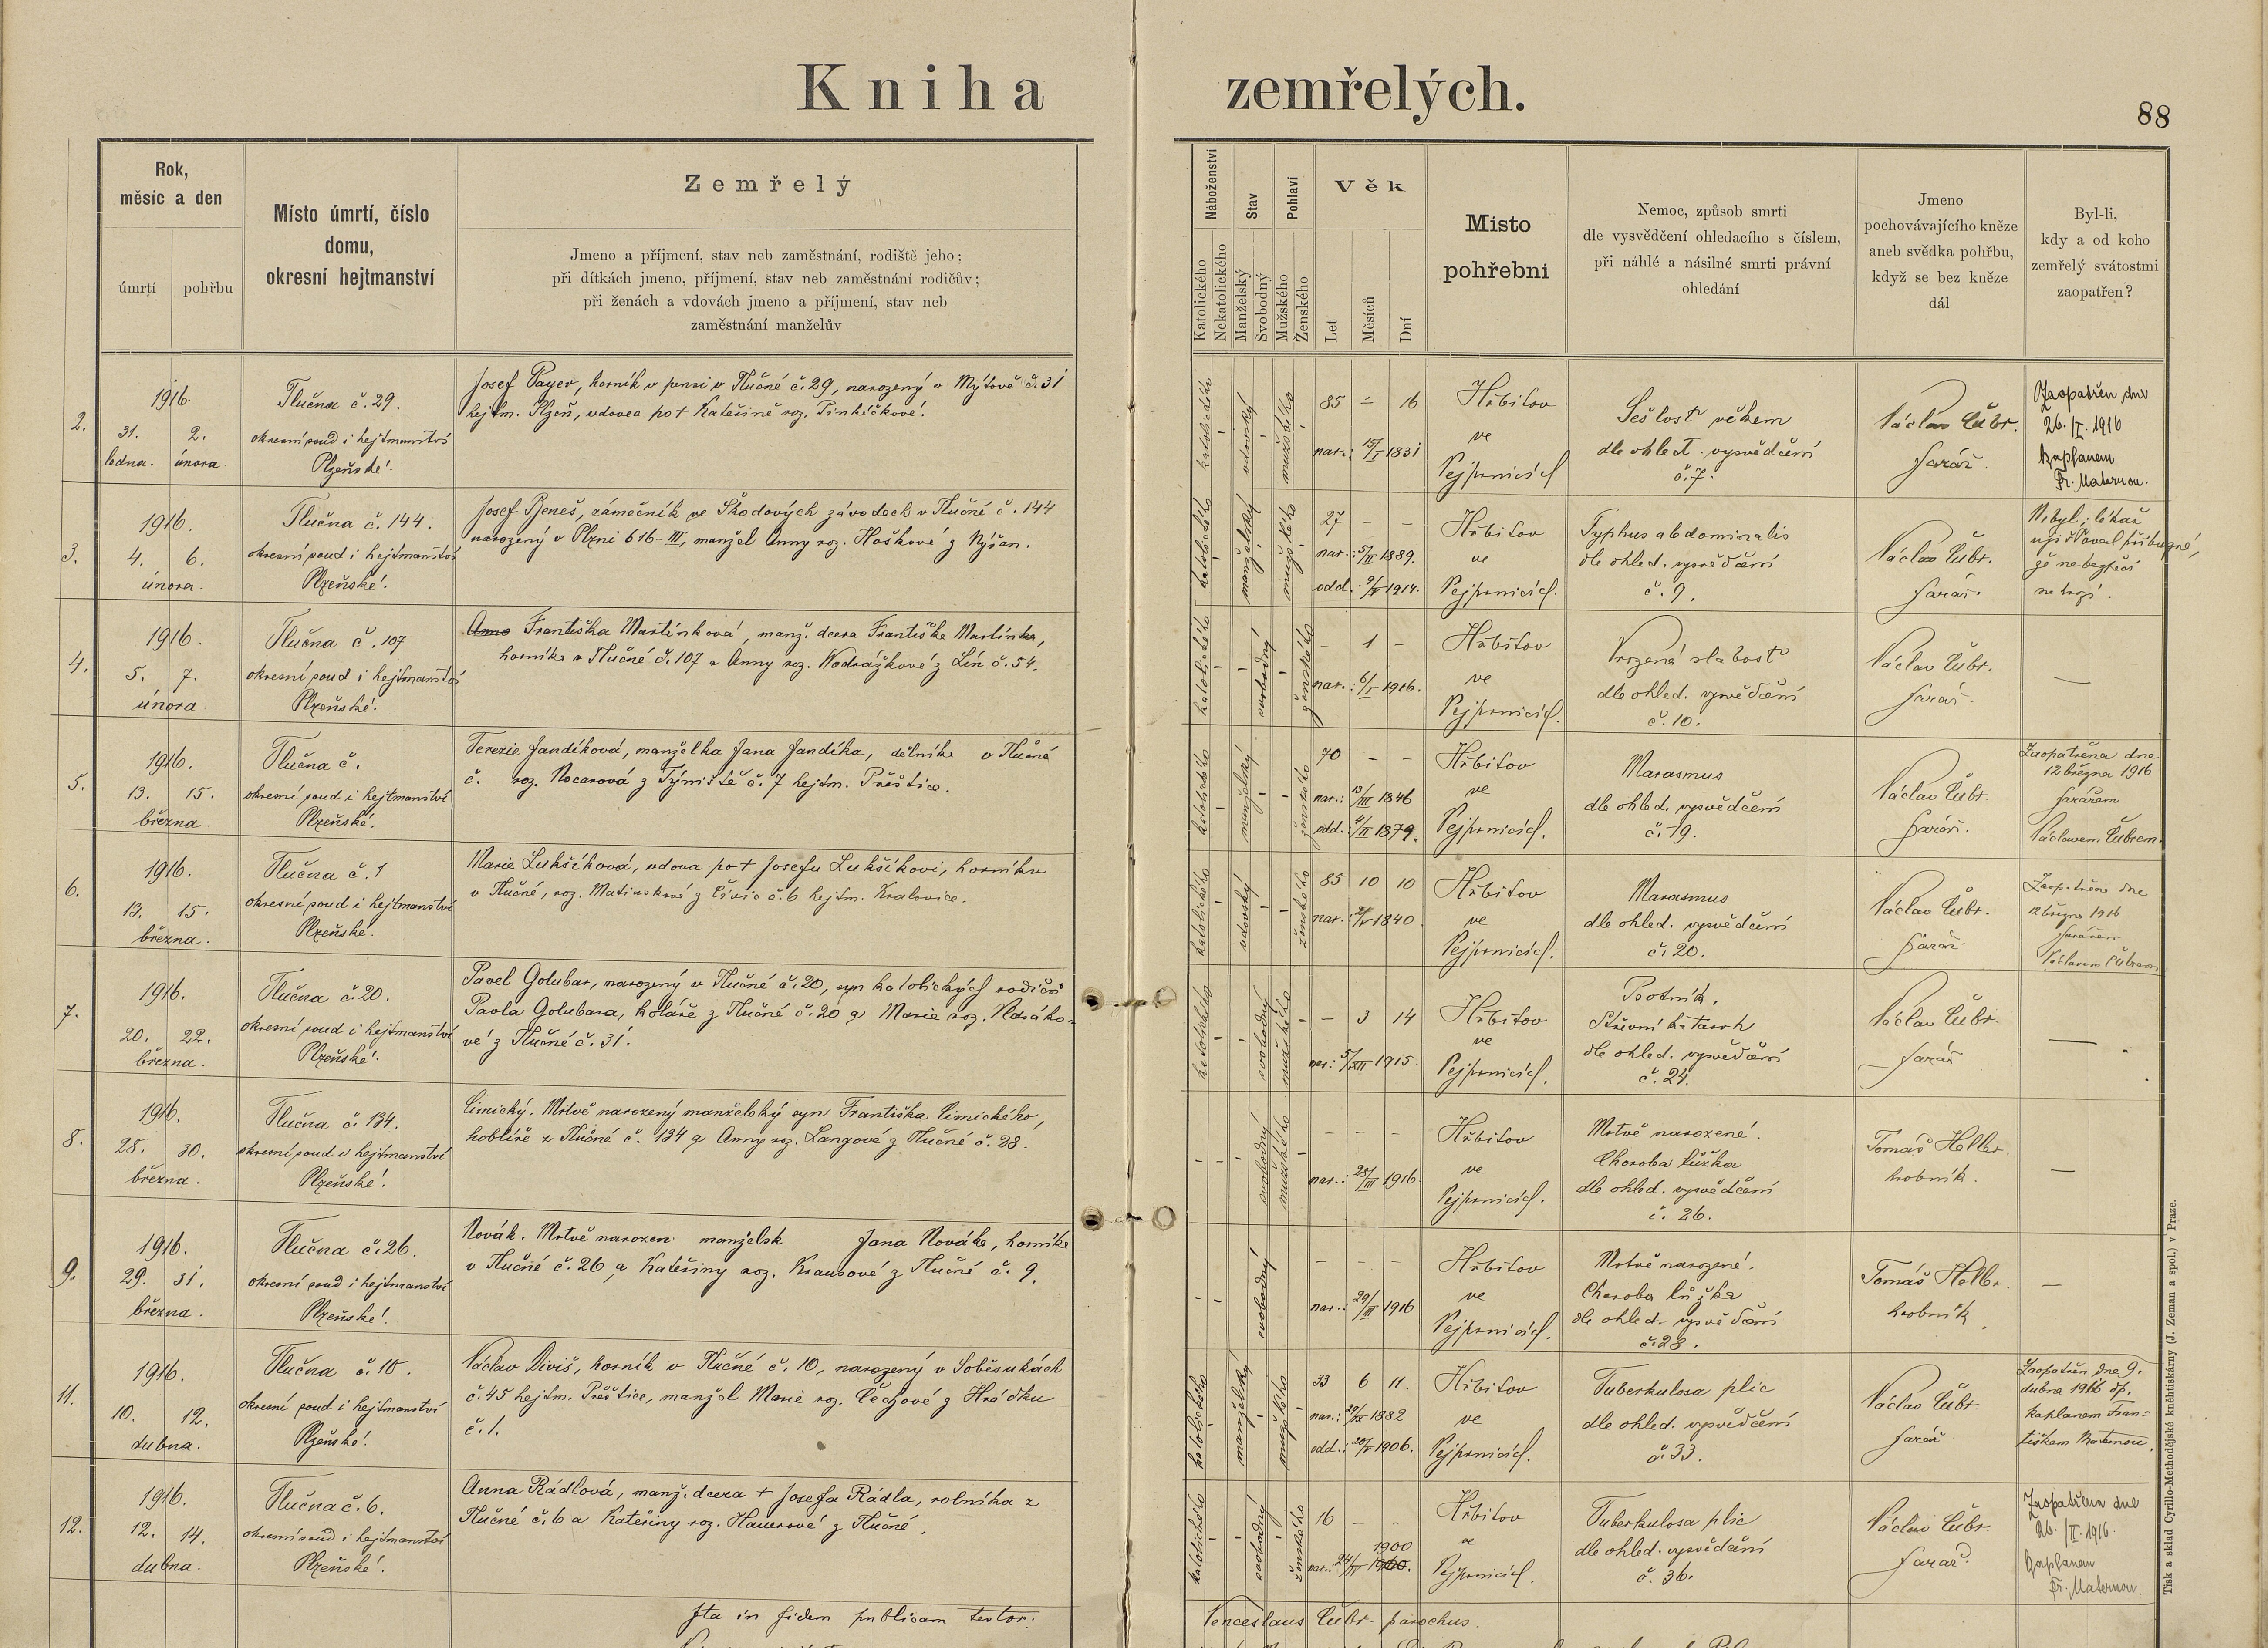 Kniha zemřelých.
88
Rok,
měsíc a den
úmrtí
pohřbu
Místo úmrtí, číslo
domu,
okresní hejtmanství
Zemřelý
Jmeno a příjmení, stav neb zaměstnání, rodiště jeho;
při dítkách jmeno, příjmení, stav neb zaměstnání rodičův;
při ženách a vdovách jmeno a příjmení, stav neb
zaměstnání manželův
Náboženství
Katolického
Nekatolického
Stav
Manželský
Svobodný
Pohlaví
Mužského
Ženského
Věk
Let
Měsíců
Dní
Místo
pohřební
Nemoc, způsob smrti
dle vysvědčení ohledacího s číslem,
při náhlé a násilné smrti právní
ohledání
Jmeno
pochovávajícího kněze
aneb svědka pohřbu,
když se bez kněze
dál
Byl-li,
kdy a od koho
zemřelý svátostmi
zaopatřen?
2.
1916.
31. 2.
ledna. února.
Tlučna č. 29.
okresní soud i hejtmanství
Plzeňské.
Josef Payer, horník v pensi v Tlučné č. 29, narozený v Mýtově č. 31
hejtm. Plzeň, vdovec po † Kateřině roz.
katolického
vdovský
mužského
85 - 16
nar.: 15/I 1831
Hřbitov
ve
Vejprnicích
Sešlosť věkem
dle ohled. vysvědčení
č. 7.
Václav Čubr.
farář.
Zaopatřen dne
26./I. 1916
kaplanem
Fr. Maternou.
3.
1916.
4. 6.
února.
Tlučna č. 144.
okresní soud i hejtmanství
Plzeňské.
Josef Beneš, zámečník ve Škodových závodech v Tlučné č. 144
narozený v Plzni 616-III, manžel Anny roz. Hoškové z Nýřan.
katolického
manželský
mužského
27 - -
nar.: 5/II 1889.
odd.: 9/V 1914.
Hřbitov
ve
Vejprnicích.
Typhus abdominalis
dle ohled. vysvědčení
č. 9.
Václav Čubr.
farář.
Nebyl; lékař
ujišťoval příbuzné,
že nebezpečí
nehrozí.
4.
1916.
5. 7.
února.
Tlučna č. 107
okresní soud i hejtmanství
Plzeňské.
Anna Františka Martínková, manž. dcera Františka Martínka,
horníka v Tlučné č. 107 a Anny roz. Vodrážkové z Lín č. 54.
katolického
svobodný
ženského
- 1 -
nar.: 6/I 1916.
Hřbitov
ve
Vejprnicích.
Vrozená slabosť
dle ohled. vysvědčení
č. 10.
Václav Čubr.
farář.
—
5.
1916.
13. 15.
března.
Tlučna č.
okresní soud i hejtmanství
Plzeňské.
Terezie Jandíková, manželka Jana Jandíka, dělníka v Tlučné
č. roz. Nocarová z Týniště č. 7 hejtm. Přeštice.
katolického
manželský
ženského
70 - -
nar.: 13/III 1846
odd.: 9/II 1879.
Hřbitov
ve
Vejprnicích.
Marasmus
dle ohled. vysvědčení
č. 19.
Václav Čubr.
farář.
Zaopatřena dne
12 března 1916
farářem
Václavem Čubrem.
6.
1916.
13. 15.
března.
Tlučna č. 1
okresní soud i hejtmanství
Plzeňské.
Marie Lukšíková, vdova po † Josefu Lukšíkovi, horníku
v Tlučné, roz. č. 6 hejtm. Kralovice.
katolického
vdovský
ženského
85 10 10
nar.: 1840
Hřbitov
ve
Vejprnicích.
Marasmus
dle ohled. vysvědčení
č. 20.
Václav Čubr.
farář.
Zaopatřena dne
12 března 1916
farářem
Václavem Čubrem
7.
1916.
20. 22.
března.
Tlučna č. 20.
okresní soud i hejtmanství
Plzeňské.
Pavel Golubar, narozený v Tlučné č. 20, syn katolických rodičů
Pavla Golubara, koláře z Tlučné č. 20 a Marie roz.
vé z Tlučné č. 31.
katolického
svobodný
mužského
- 3 14
nar.: 5/XII 1915.
Hřbitov
ve
Vejprnicích.
Psotník.
Střevní katarrh
dle ohled. vysvědčení
č. 24.
Václav Čubr.
farář
—
8.
1916.
28. 30.
března.
Tlučna č. 134.
okresní soud i hejtmanství
Plzeňské.
Cimický. Mrtvě narozený manželský syn Františka Cimického,
hoblíře z Tlučné č. 134 a Anny roz. Langové z Tlučné č. 28.
svobodný
mužského
- - -
nar.: 28/III 1916.
Hřbitov
ve
Vejprnicích.
Mrtvě narozené.
Choroba lůžka
dle ohled. vysvědčení
č. 26.
Tomáš Heller.
hrobník.
—
9.
1916.
29. 31.
března.
Tlučna č. 26.
okresní soud i hejtmanství
Plzeňské.
Novák. Mrtvě narozen manželsk Jana Nováka, horníka
v Tlučné č. 26 a Kateřiny roz. Krausové z Tlučné č. 9.
svobodný
- - -
nar.: 29/III 1916
Hřbitov
ve
Vejprnicích.
Mrtvě narozené.
Choroba lůžka
dle ohled. vysvědčení
č. 28.
Tomáš Heller.
hrobník.
—
11.
1916.
10. 12.
dubna.
Tlučna č. 10.
okresní soud i hejtmanství
Plzeňské.
Václav Diviš, horník v Tlučné č. 10, narozený v Soběsukách
č. 45 hejtm. Přeštice, manžel Marie roz. Čechové z Hrádku
č. 1.
katolického
manželský
mužského
33 6 11.
nar.: 29/IX 1882
odd.: 20/V 1906.
Hřbitov
ve
Vejprnicích.
Tuberkulosa plic
dle ohled. vysvědčení
č. 33.
Václav Čubr.
farář
Zaopatřen dne 9.
dubna 1916 dp.
kaplanem Fran-
tiškem Maternou.
12.
1916.
12. 14.
dubna.
Tlučna č. 6.
okresní soud i hejtmanství
Plzeňské.
Anna Rádlová, manž. dcera † Josefa Rádla, rolníka z
Tlučné č. 6 a Kateřiny roz. Hauerové z Tlučné.
katolického
svobodný
ženského
16 - -
1900
nar.: 24/IV
Hřbitov
ve
Vejprnicích.
Tuberkulosa plic
dle ohled. vysvědčení
č. 36.
Václav Čubr.
farář.
Zaopatřena dne
26./II. 1916.
kaplanem
Fr. Maternou.
Ita in fidem publicam testor:
Venceslaus Čubr - parochus.
Tisk a sklad Cyrillo-Methodějské kněhtiskárny (J. Zeman a spol.) v Praze.